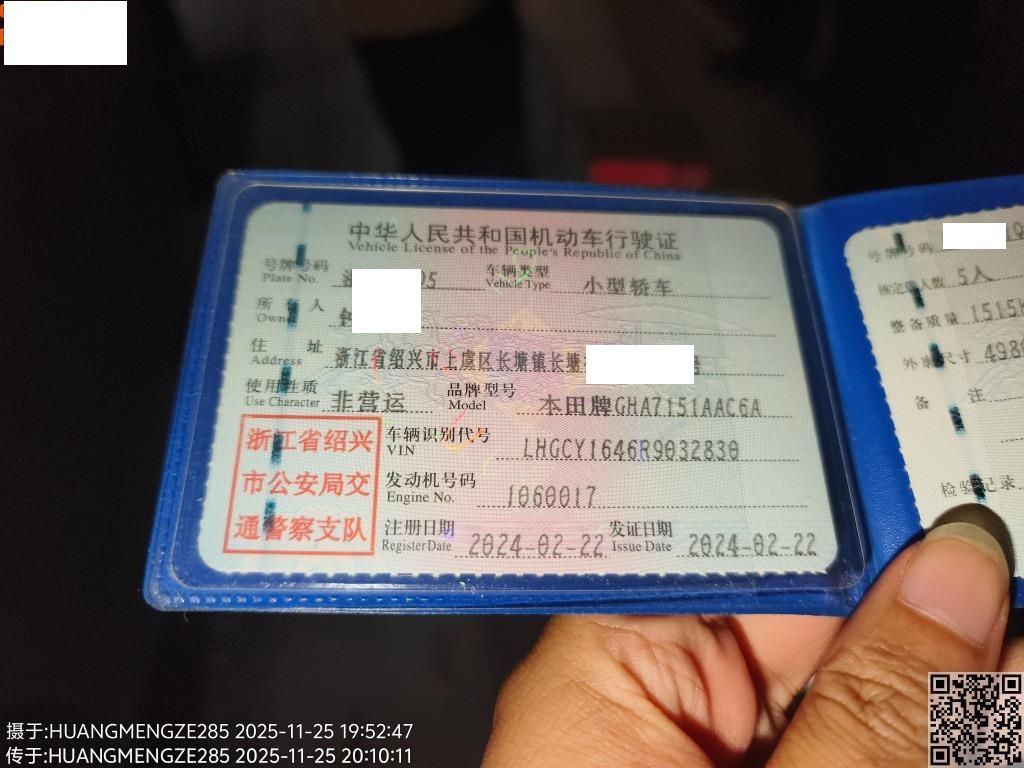 中华人民共和国机动车行驶证
Vehicle License of the People's Republic of China
号牌号码 车辆类型 小型轿车
Plate No. Vehicle Type
所有人
Owner
住址 浙江省绍兴市上虞区长塘镇长塘
Address
使用性质 非营运 品牌型号 本田牌GHA7151AAC6A
Use Character Model
浙江省绍兴
市公安局交
通警察支队
车辆识别代号 LHGCY1646R9032830
VIN
发动机号码 1060017
Engine No.
注册日期 2024-02-22 发证日期 2024-02-22
Register Date Issue Date
号牌号码
核定载人数 5人
整备质量 1515
外廓尺寸 498
备注
检验记录
摄于:HUANGMENGZE285 2025-11-25 19:52:47
传于:HUANGMENGZE285 2025-11-25 20:10:11